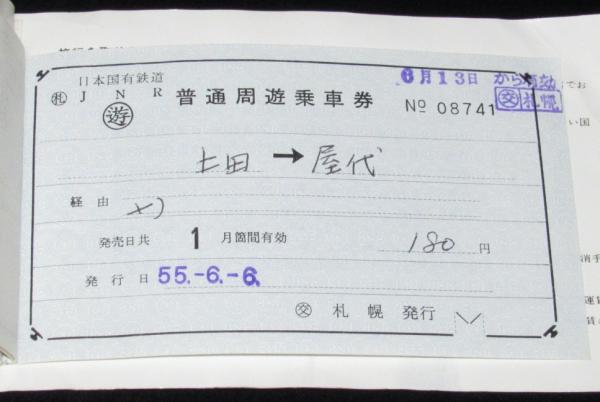 日本国有鉄道
㊍ J N R 普通周遊乗車券
遊
6月13日 から有効
交 札幌
No 08741
上田 → 屋代
経由 メ)
発売日共 1 月箇間有効 180 円
発行日 55.-6.-6.
交 札幌 発行